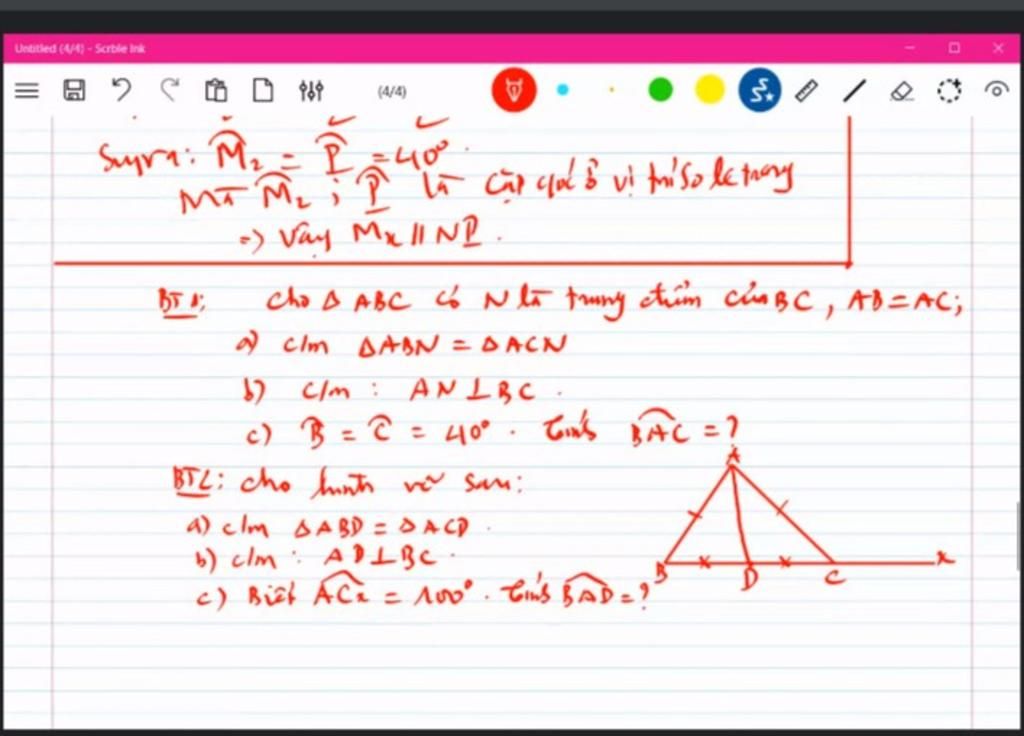 Untitled (4/4) - Scrble Ink
(4/4)
Suy ra: M̂₂ = P̂ = 40°.
Mà M̂₂ ; P̂ là cặp góc ở vị trí so le trong
=> Vậy Mx // NP.
BT1: Cho Δ ABC có N là trung điểm của BC, AB = AC;
a) c/m ΔABN = ΔACN
b) c/m : AN ⊥ BC.
c) B̂ = Ĉ = 40°. Tính BAC = ?
BT2: Cho hình vẽ sau:
a) c/m ΔABD = ΔACD.
b) c/m : AD ⊥ BC.
c) Biết ACx = 100°. Tính BAD = ?
A
B
D
C
x